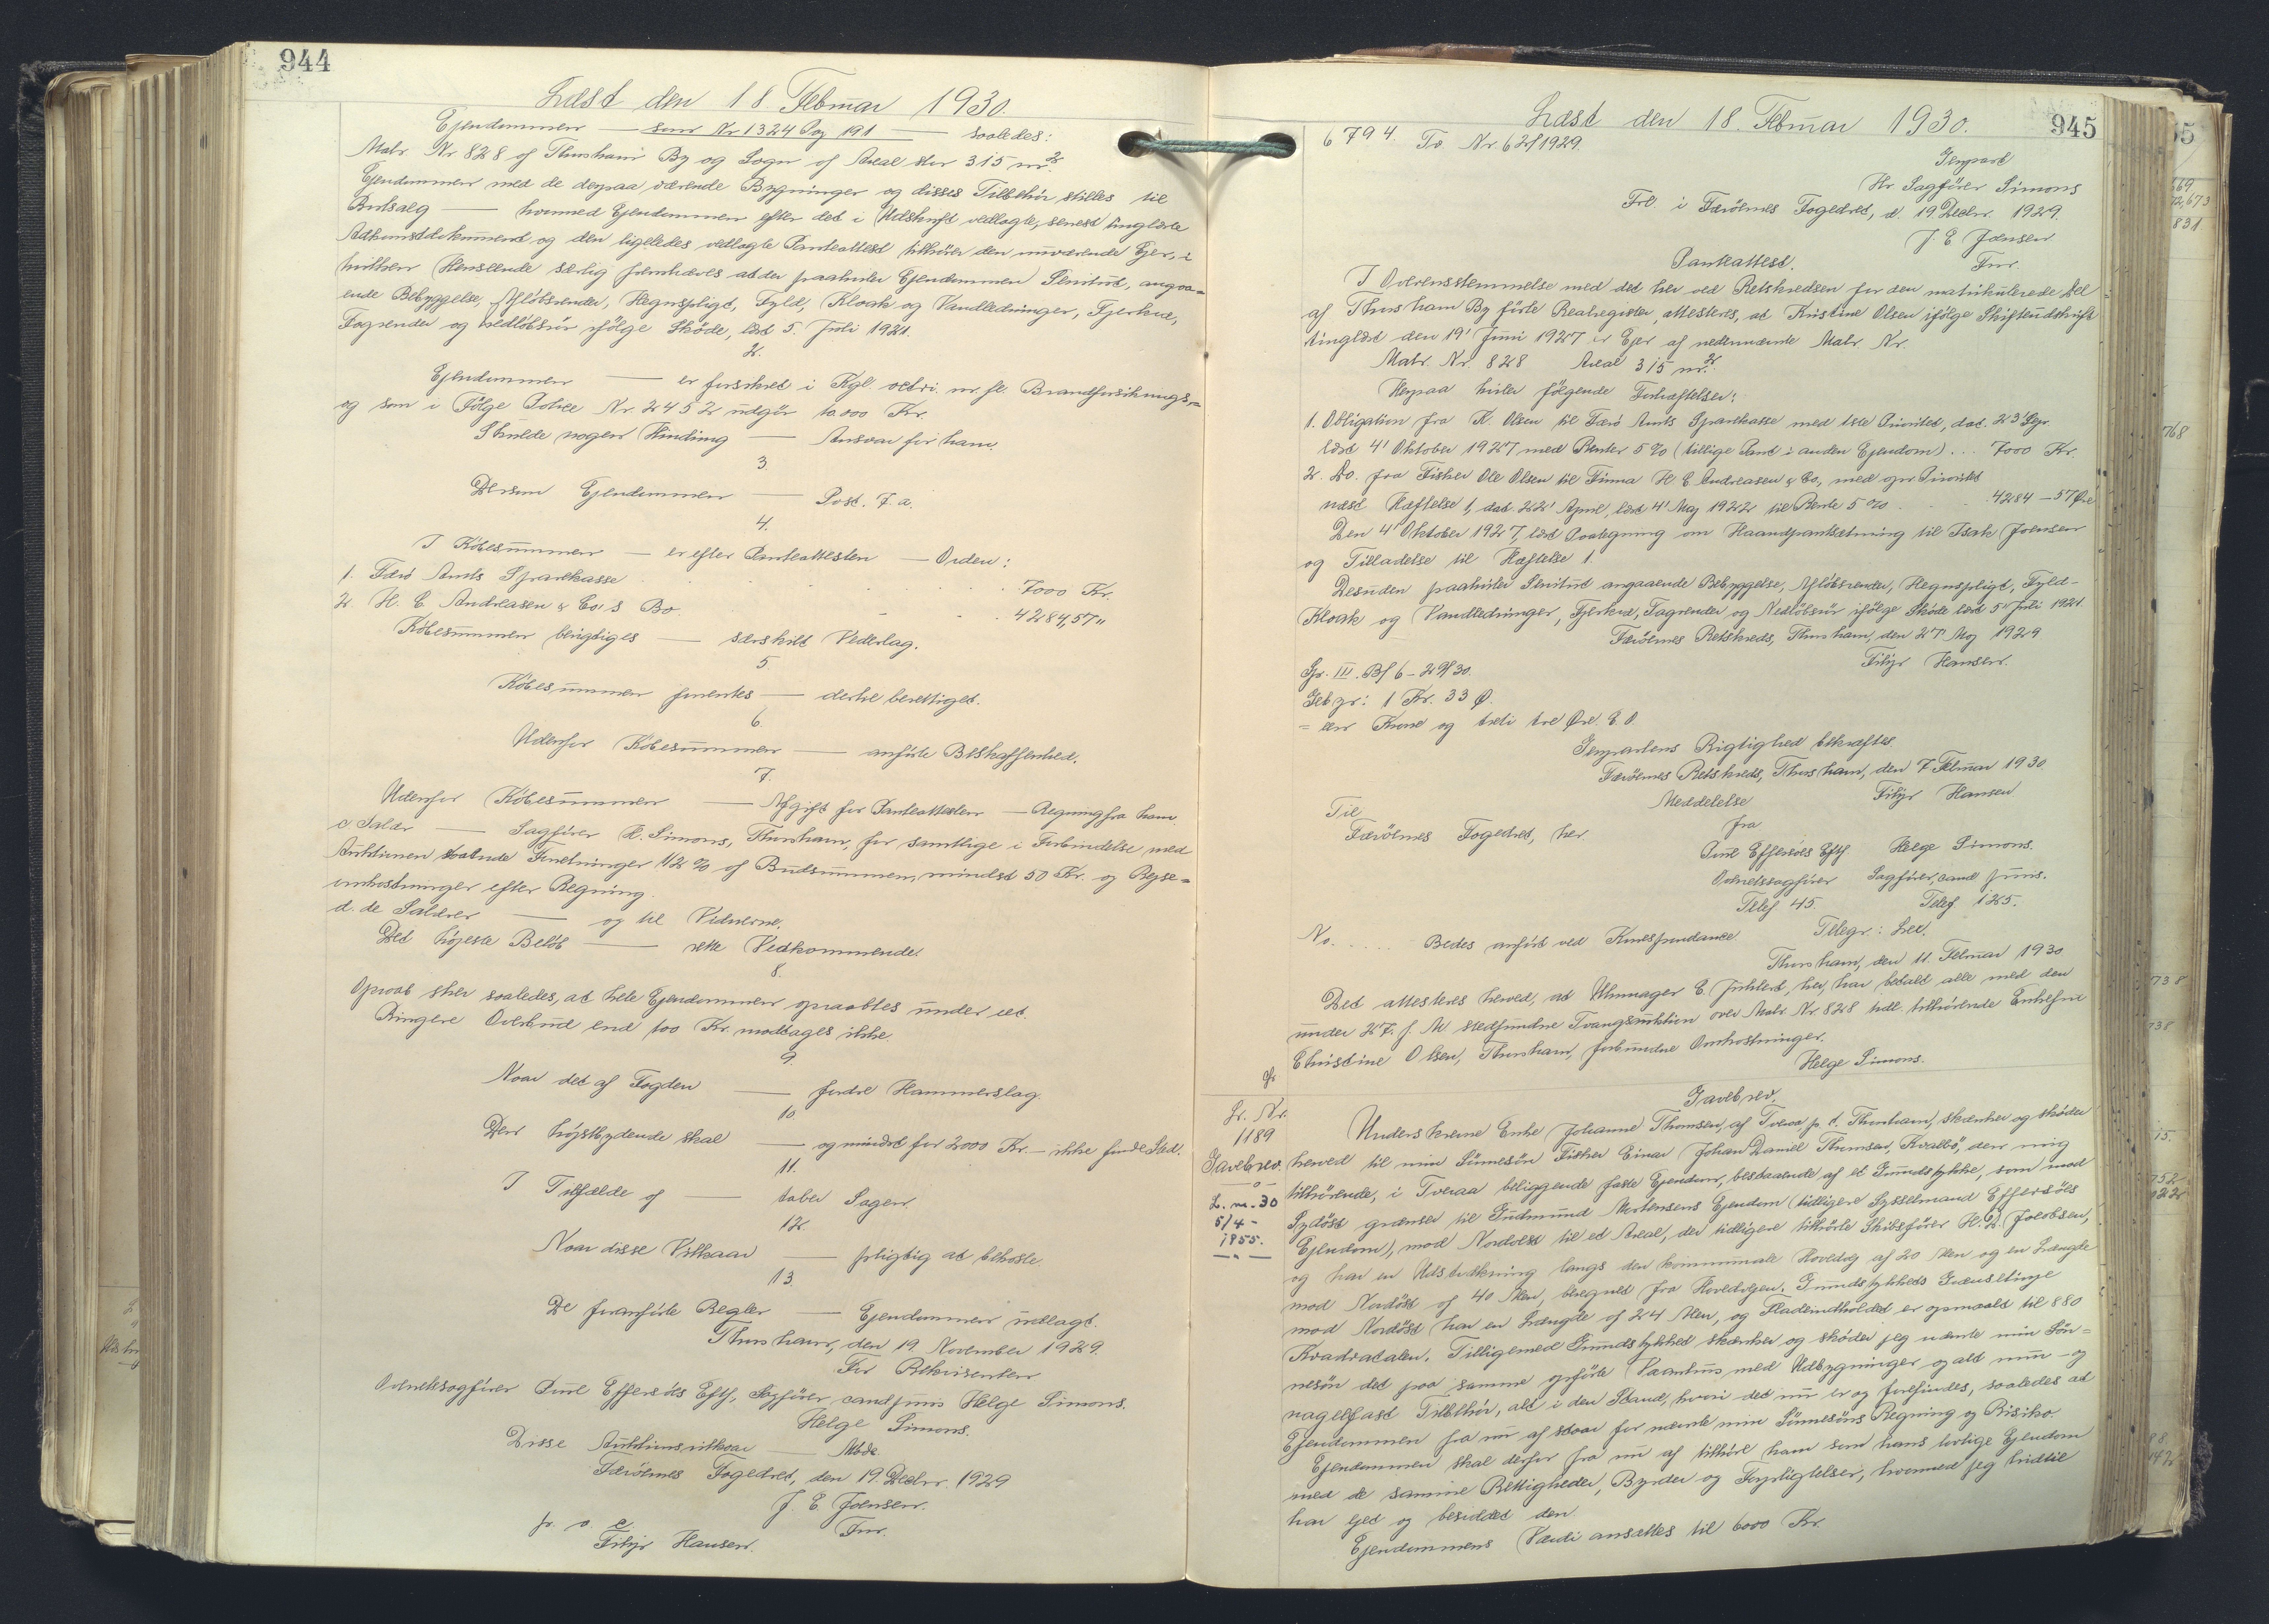 944
Læst den 18. Februar 1930.
Ejendommen — som Nr 1324 Pag 191 — saaledes:
Matr. Nr 828 af Thorshavn By og Sogn af Areal stor 315 m².
Ejendommen med de derpaa værende Bygninger og disses Tilbehör stilles til
Bortsalg — hvormed Ejendommen efter det i Udskrift vedlagte, senest tinglæste
Adkomstdokument og den ligeledes vedlagte Panteattest tilhører den nuværende Ejer, i
hvilken Henseende særlig fremhæves at der paahviler Ejendommen Servitut, angaa-
ende Bebyggelse, Aflöbsrender, Hegnspligt, Fyld, Kloak og Vandledninger, Fjerkræ,
Tagrender og nedlöbsrör ifölge Sköde, læst 5. Juli 1921.
2.
Ejendommen — er forsikret i Kgl. octri. m. fl. Brandforsiknings-
og som i Fölge Police Nr. 2452 udgör 10.000 Kr.
Skulde nogen Hindring — Ansvar for ham.
3.
Dersom Ejendommen — Post. 7. a.
4.
I Köbesummen — er efter Panteattesten — Orden:
1. Færö Amts Sparekasse . . . . . 7000 Kr.
2. H. C. Andreasen & Co's Bo. . . . 4284,57 "
Köbesummen berigtiges — særskilt Vederlag.
5
Köbesummen forrentes — dertil berettiget.
6
Udenfor Köbesummen — anförte Beskaffenhed.
7.
Udenfor Köbesummen — Afgift for Panteattesten — Regning fra ham
c Salær — Sagförer H. Simons, Thorshavn, for samtlige i Forbindelse med
Auktionen staaende Forretninger 1/2 % af Budsummen, mindst 50 Kr. og Rejse-
omkostninger efter Regning.
d. de Salærer — og til Vidnerne.
Det höjeste Belöb — rette Vedkommende.
8.
Opraab sker saaledes, at hele Ejendommen opraabtes under eet.
Ringere Overbud end 100 Kr. modtages ikke.
9.
Naar det af Fogden — fordre Hammerslag.
10.
Den höjstbydende skal — og mindst for 2000 Kr. — ikke finde Sted.
11.
I Tilfælde af — taber Sagen.
12.
Naar disse Vilkaar — pligtig at bekoste.
13.
De foranförte Regler — Ejendommen udlagt.
Thorshavn, den 19. November 1929.
For Rekvirenten
Overretssagförer Poul Effersöes Eftf., Sagförer, cand juris Helge Simons.
Helge Simons.
Disse Auktionsvilkaar — Mødt.
Færöernes Fogedret, den 19. Decbr. 1929
J. E. Joensen.
Fm.
p. o. c
Filip Hansen.
945
Læst den 18. Februar 1930.
6794. To. Nr. 62/1929.
Genpart
Hr. Sagförer Simons
Frl. i Færöernes Fogedret, d. 19 Decbr. 1929.
J. E. Joensen
Fm.
Panteattest.
I Overensstemmelse med det her ved Retskredsen for den matrikulerede Del
af Thorshavn By förte Realregister, attesteres, at Kristine Olsen ifölge Skifteudskrift
tinglæst den 19' Juni 1927 er Ejer af nedennævnte Matr. Nr.
Matr. Nr. 828 Areal 315 m².
Herpaa hviler fölgende Forhæftelser:
1. Obligation fra K. Olsen til Færö Amts Sparekasse med 1ste Prioritet, dat. 23' Sepr.
læst 4' Oktober 1927 med Renter 5 % (tillige Pant i anden Ejendom) . . . 7000 Kr.
2. Do. fra Fisker Ole Olsen til Firma H C Andreasen & Co., med opr Prioritet
næst Hæftelse 1, dat. 22' April, læst 4' Maj 1922 til Rente 5 % . . . 4284 — 57 Øre
Den 4' Oktober 1927, læst Paategning om Haandpantsætning til Isak Joensen
og Tilladelse til Hæftelse 1.
Desuden paahviler Servitut angaaende Bebyggelse, Aflöbsrender, Hegnspligt, Fyld-
Kloak og Vandledninger, Fjerkræ, Tagrender og Nedlöbsrör ifölge Sköde læst 5" Juli 1921.
Færöernes Retskreds, Thorshavn, den 27' Maj 1929
Filip Hansen.
Gr. III. Bf 6 - 29/30.
Geb gr: 1 Kr. 33 Ø.
= een Krone og treti tre Øre. E. O.
Genpartens Rigtighed bekræftes.
Færöernes Retskreds, Thorshavn, den 7 Februar 1930
Filip Hansen
Meddelelse
Til
Færöernes Fogedret, her.
fra
Poul Effersöes Eftf. Helge Simons.
Overretssagförer Sagförer, cand juris.
Telef 45. Telef. 125.
Telegr.: Lex.
No. . . . . . Bedes anfört ved Korrespondance.
Thorshavn, den 11. Februar 1930
Det attesteres herved, at Uhrmager C. Juhlert, her, har betalt alle med den
under 27. f. M stedfundne Tvangsauktion over Matr. Nr. 828 hdl. tilhörende Enkefru
Christine Olsen, Thorshavn, forbundne Omkostninger.
Helge Simons.
Gavebrev.
Lr. Nr.
1189
Gavebrev.
—o—
L. m. 30
5/4 -
1855.
—"—
Underskrevne Enke Johanne Thomsen, af Tveraa p. t. Thorshavn, skænker og sköder
herved til min Sönnesön Fisker Einar Johan Daniel Thomsen, Kvalbö, den mig
tilhörende, i Tveraa beliggende faste Ejendom, bestaaende af et Grundstykke, som mod
Sydöst grænser til Gudmund Mortensens Ejendom (tidligere Sysselmand Effersöes
Ejendom), mod Nordvest til et Areal, der tidligere tilhörte Skibsförer H. D. Jacobsen,
og har en Udstrækning langs den kommunale Hovedvej af 20 Alen og en Længde
mod Nordöst af 40 Alen, beregnet fra Hovedvejen. Grundstykkets Grænselinje
mod Nordöst har en Længde af 24 Alen, og Fladeindholdet er opmaalt til 880
Kvadratalen. Tilligemed Grundstykket skænker og sköder jeg nævnte min Sön-
nesön det paa samme opförte Vaanhus med Udbygninger og alt mur- og
nagelfast Tilbehör, alt i den Stand, hvori det nu er og forefindes, saaledes at
Ejendommen fra nu af staar for nævnte min Sönnesöns Regning og Risiko.
Ejendommen skal derfor fra nu af tilhöre ham som hans lovlige Ejendom
med de samme Rettigheder, Byrder og Forpligtelser, hvormed jeg hidtil
har ejet og besiddet den.
Ejendommens Værdi ansættes til 6000 Kr.